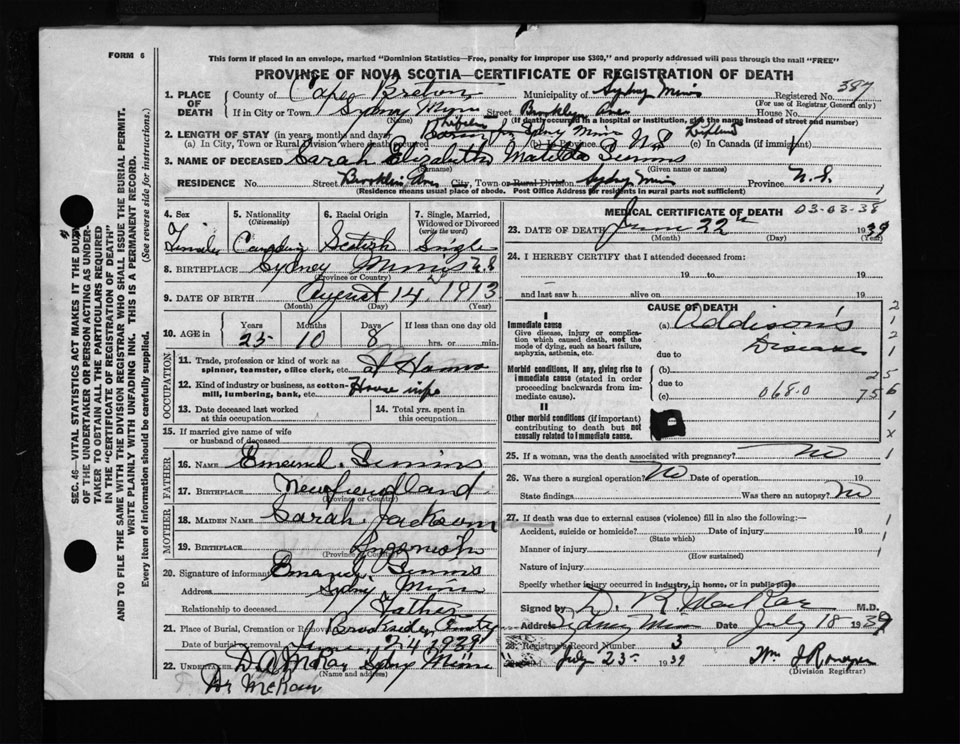 FORM 6
This form if placed in an envelope, marked "Dominion Statistics—Free, penalty for improper use $300," and properly addressed will pass through the mail "FREE"
PROVINCE OF NOVA SCOTIA—CERTIFICATE OF REGISTRATION OF DEATH
1. PLACE OF DEATH
County of Cape Breton Municipality of Sydney Mines Registered No. 387
(For use of Registrar General only)
If in City or Town Sydney Mines Street House No.
(Name) (If death occurred in a hospital or institution, give the name instead of street and number)
2. LENGTH OF STAY (in years, months and days)
(a) In City, Town or Rural Division where death occurred Sydney Mines (b) In Province N.S. (c) In Canada (if immigrant)
3. NAME OF DECEASED Sarah Elizabeth Matilda Simms
(Surname) (Given name or names)
RESIDENCE No. Street City, Town or Rural Division Sydney Mines Province N.S.
(Residence means usual place of abode. Post Office Address for residents in rural parts not sufficient)
SEC. 46—VITAL STATISTICS ACT MAKES IT THE DUTY
OF THE UNDERTAKER OR PERSON ACTING AS UNDER-
TAKER TO OBTAIN ALL THE PARTICULARS REQUIRED
IN THE "CERTIFICATE OF REGISTRATION OF DEATH"
AND TO FILE THE SAME WITH THE DIVISION REGISTRAR WHO SHALL ISSUE THE BURIAL PERMIT.
WRITE PLAINLY WITH UNFADING INK. THIS IS A PERMANENT RECORD.
Every item of information should be carefully supplied. (See reverse side for instructions.)
4. Sex
Female
5. Nationality
(Citizenship)
Canadian
6. Racial Origin
Scotish
7. Single, Married, Widowed or Divorced
(write the word)
Single
8. BIRTHPLACE Sydney Mines N.S
(Province or Country)
9. DATE OF BIRTH August 14, 1913
(Month) (Day) (Year)
10. AGE in
Years Months Days If less than one day old
25 10 8 hrs. or min.
OCCUPATION
11. Trade, profession or kind of work as spinner, teamster, office clerk, etc. at Home
12. Kind of industry or business, as cotton-mill, lumbering, bank, etc. House
13. Date deceased last worked at this occupation
14. Total yrs. spent in this occupation
15. If married give name of wife or husband of deceased
FATHER
16. Name Simms
17. Birthplace Newfoundland
(Province or Country)
MOTHER
18. Maiden Name Sarah Jackson
19. Birthplace Ingonish
(Province or Country)
20. Signature of informant Simms
Address Sydney Mines
Relationship to deceased Father
21. Place of Burial, Cremation or Removal Brookside
Date of burial or removal June 24, 1939
22. UNDERTAKER D A McRay Sydney Mines
(Name and address)
Dr McKay
MEDICAL CERTIFICATE OF DEATH 03-03-38
23. DATE OF DEATH June 22nd 1939
(Month) (Day) (Year)
24. I HEREBY CERTIFY that I attended deceased from:
19 to 19
and last saw h alive on 19
CAUSE OF DEATH
I
Immediate cause
Give disease, injury or complication which caused death, not the mode of dying, such as heart failure, asphyxia, asthenia, etc.
(a) Addison's
Disease
due to
Morbid conditions, if any, giving rise to immediate cause (stated in order proceeding backwards from immediate cause).
(b)
due to
(c) 068.0
II
Other morbid conditions (if important) contributing to death but not causally related to immediate cause.
25. If a woman, was the death associated with pregnancy? No
26. Was there a surgical operation? No Date of operation 19
State findings Was there an autopsy? No
27. If death was due to external causes (violence) fill in also the following:
Accident, suicide or homicide? Date of injury 19
(State which)
Manner of injury
(How sustained)
Nature of injury
Specify whether injury occurred in industry, in home, or in public place
Signed by D. R. MacRae M.D.
Address Sydney Mines Date July 18 1939
28. Registrar's Record Number 3
July 25 1939 Wm
(Division Registrar)